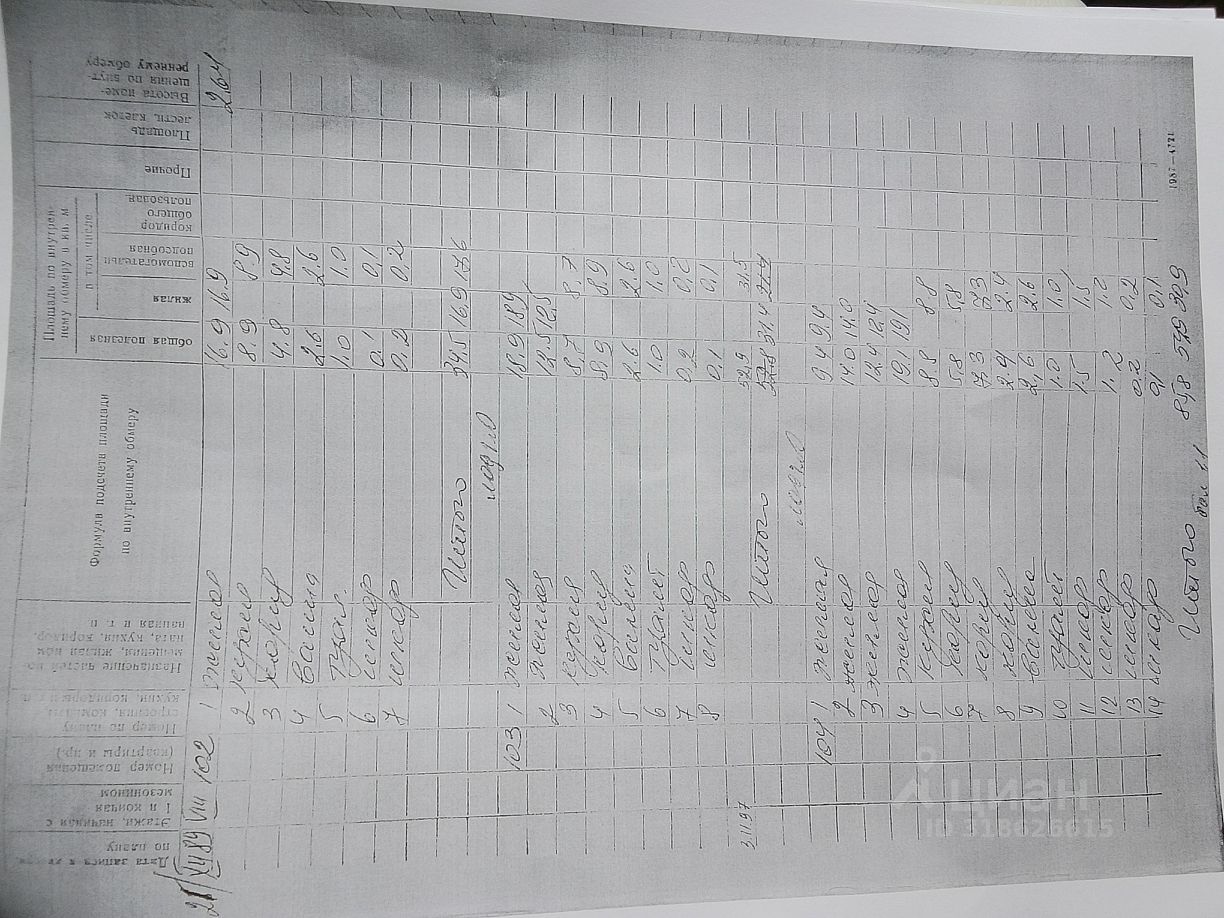 Дата записи
по плану
Этажи, начиная с
1 и кончая
мезонином
Номер помещения
(квартиры и пр.)
Номер по плану
строения, комнаты,
кухни, коридоры и т. п.
Назначение частей по-
мещения, жилая ком
ната, кухня, коридор,
ванная и т. п.
Формула подсчета площади
по внутреннему обмеру
Площадь по внутрен-
нему обмеру в кв. м
общая полезная
в том числе
жилая
вспомогательн
подсобная
коридор
общего
пользован.
Прочие
Площадь
лестн. клеток
Высота поме-
щения по внут-
реннему обмеру
VIII 102 1 жилая 16.9 16.9 2.64
2 кухня 8.9 8.9
3 корид 4.8 4.8
4 ванна 2.6 2.6
5 туал. 1.0 1.0
6 шкаф 0.1 0.1
7 шкаф 0.2 0.2
Итого 34.5 16.9 17.6
лоджия
103 1 жилая 18.9 18.9
2 жилая 12.5 12.5
3 кухня 8.7 8.7
4 корид 8.9 8.9
5 ванная 2.6 2.6
6 туалет 1.0 1.0
7 шкаф 0.2 0.2
8 шкаф 0.1 0.1
3.11.97 52,9 31,5
Итого 52.8 31.4 21.4
лоджия
104 1 жилая 9.4 9.4
2 жилая 14.0 14.0
3 жилая 12.4 12.4
4 жилая 19.1 19.1
5 кухня 8.8 8.8
6 корид 5.8 5.8
7 корид 7.3 7.3
8 корид 2.4 2.4
9 ванна 2.6 2.6
10 туалет 1.0 1.0
11 шкаф 1.5 1.5
12 шкаф 1.2 1.2
13 шкаф 0.2 0.2
14 шкаф 0.1 0.1
Итого 85,8 54,9 30,9
бал 1.1
1987—4721
циан
ID 318626615